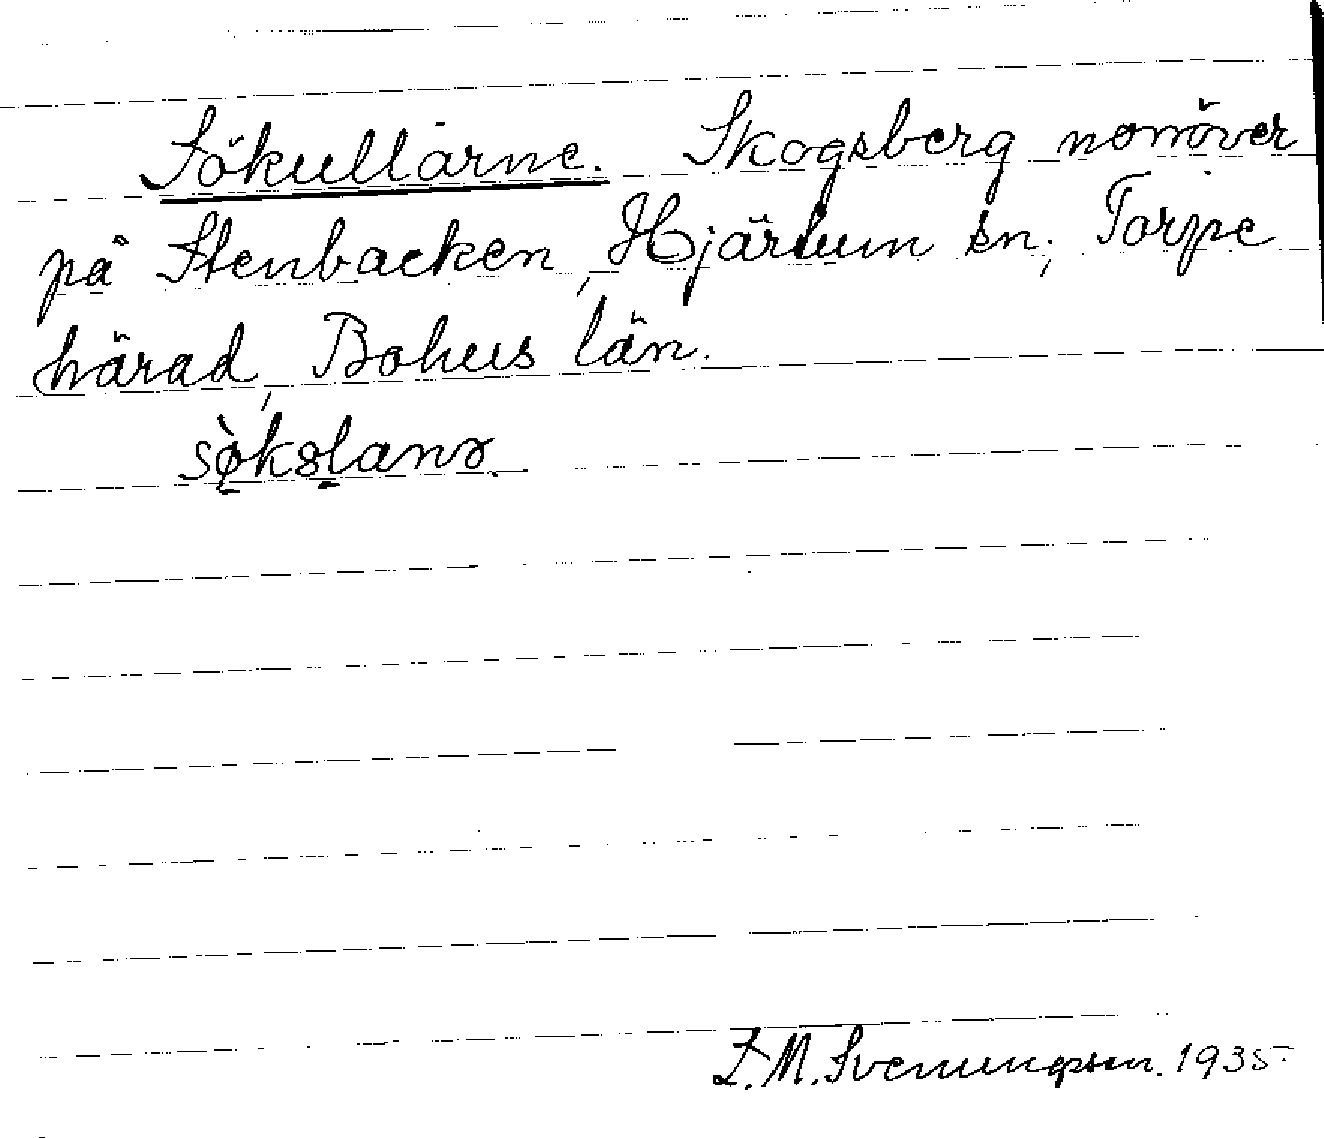 Sökullarne. Skogsberg norröver
på Stenbacken, Hjärtum sn, Torpe
härad, Bohus län.
L. M. Svenungsson. 1935